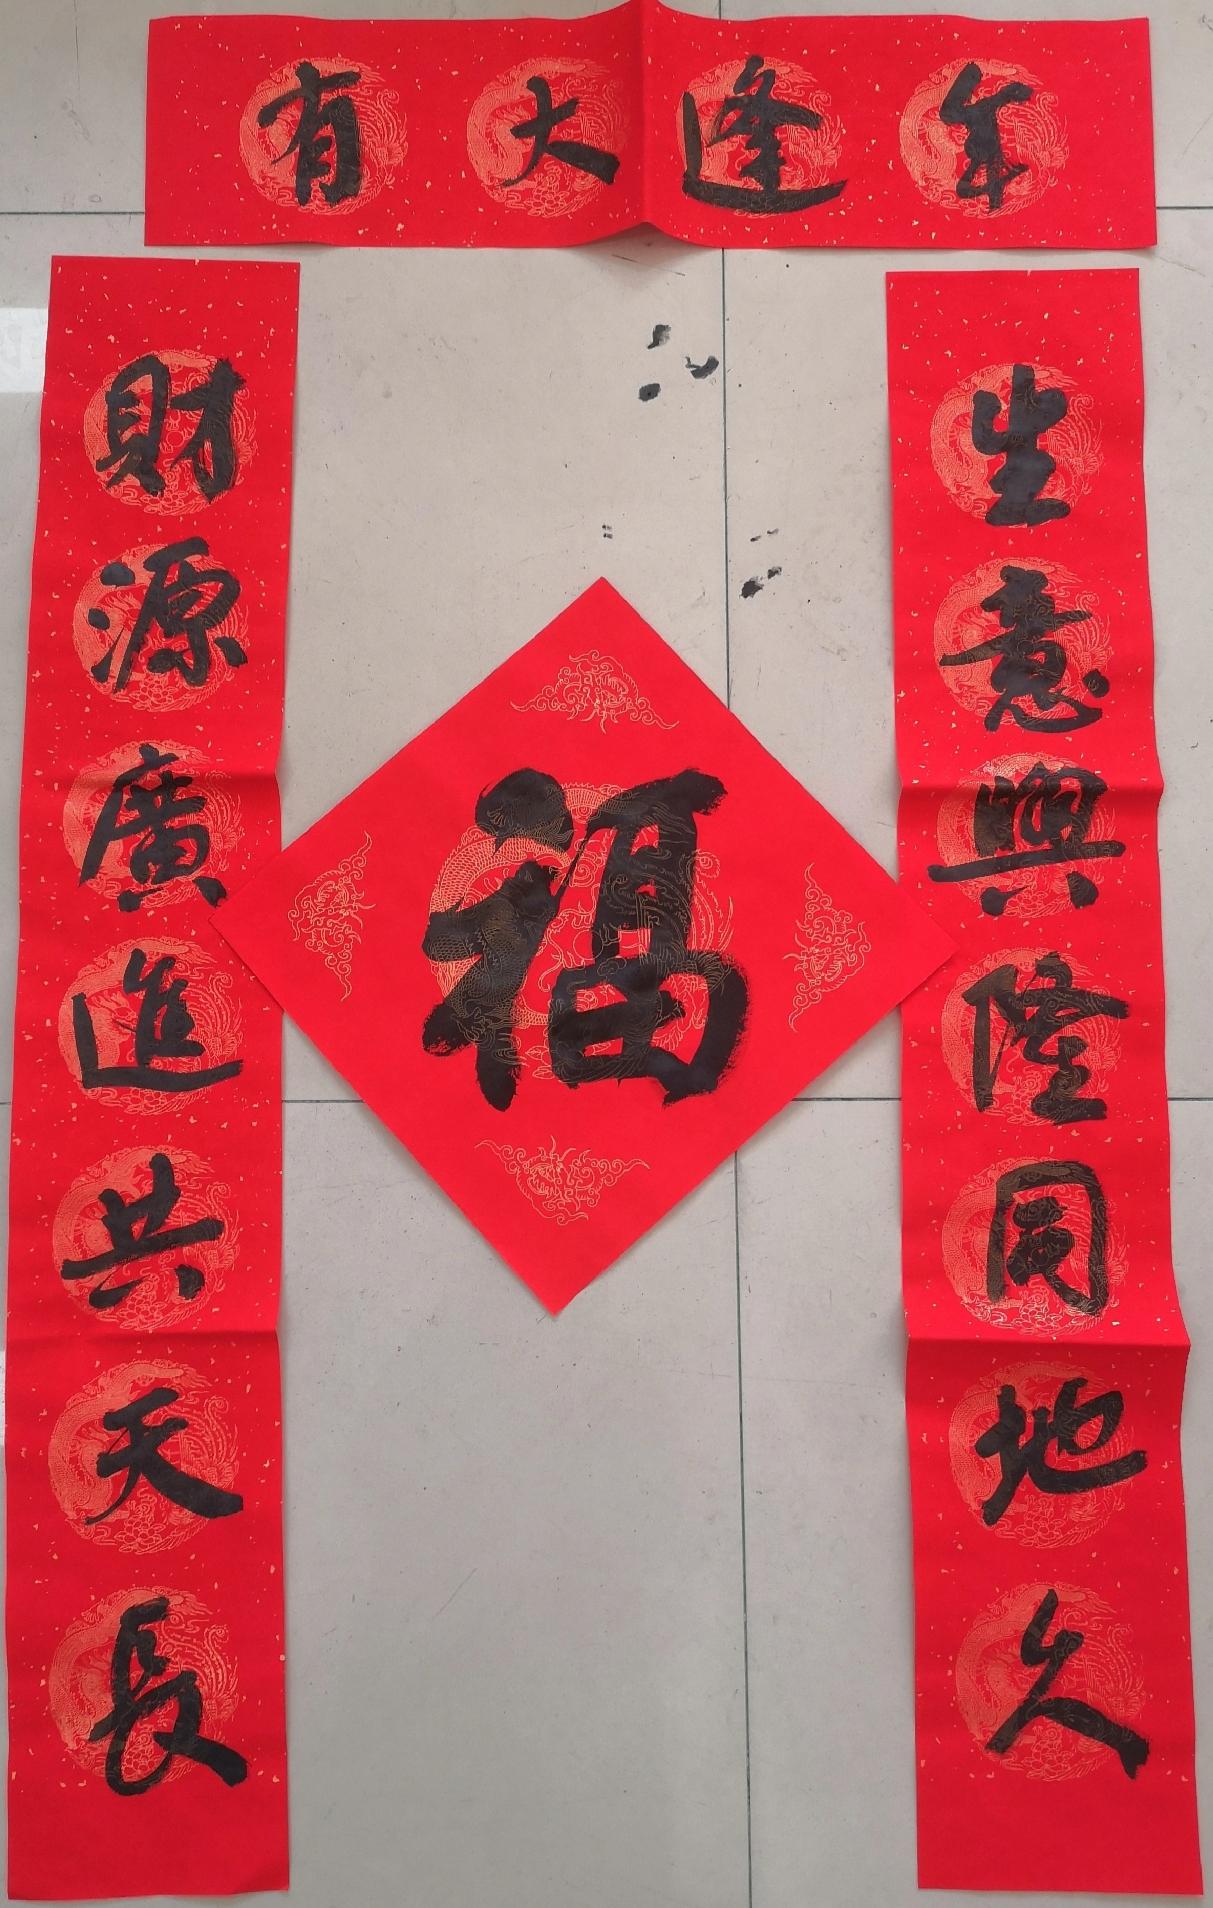 年逢大有
生意興隆同地久
財源廣進共天長
福